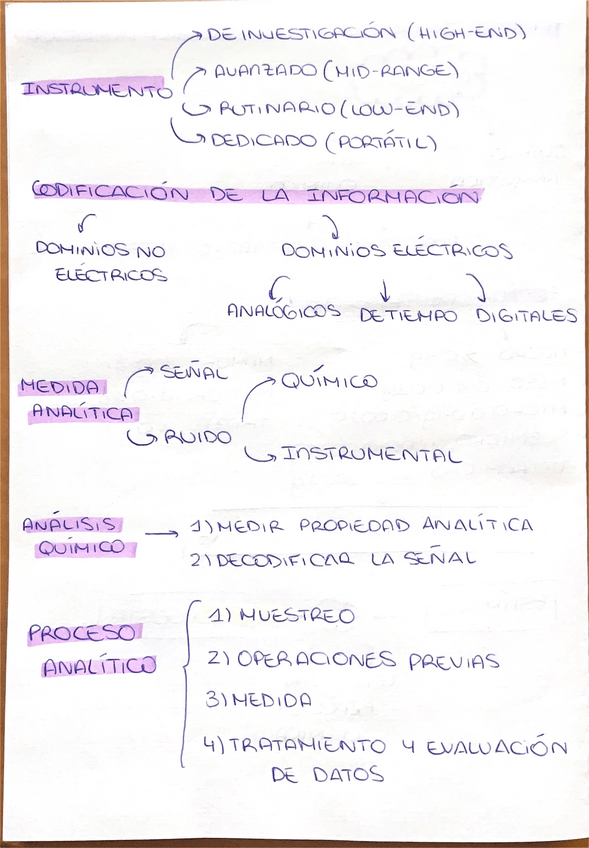 DE INVESTIGACIÓN (HIGH-END)
INSTRUMENTO
AVANZADO (MID-RANGE)
RUTINARIO (LOW-END)
DEDICADO (PORTÁTIL)
CODIFICACIÓN DE LA INFORMACIÓN
DOMINIOS NO
ELÉCTRICOS
DOMINIOS ELÉCTRICOS
ANALÓGICOS DE TIEMPO DIGITALES
MEDIDA
ANALÍTICA
SEÑAL
RUIDO
QUÍMICO
INSTRUMENTAL
ANÁLISIS
QUÍMICO
1) MEDIR PROPIEDAD ANALÍTICA
2) DECODIFICAR LA SEÑAL
PROCESO
ANALÍTICO
1) MUESTREO
2) OPERACIONES PREVIAS
3) MEDIDA
4) TRATAMIENTO Y EVALUACIÓN
DE DATOS